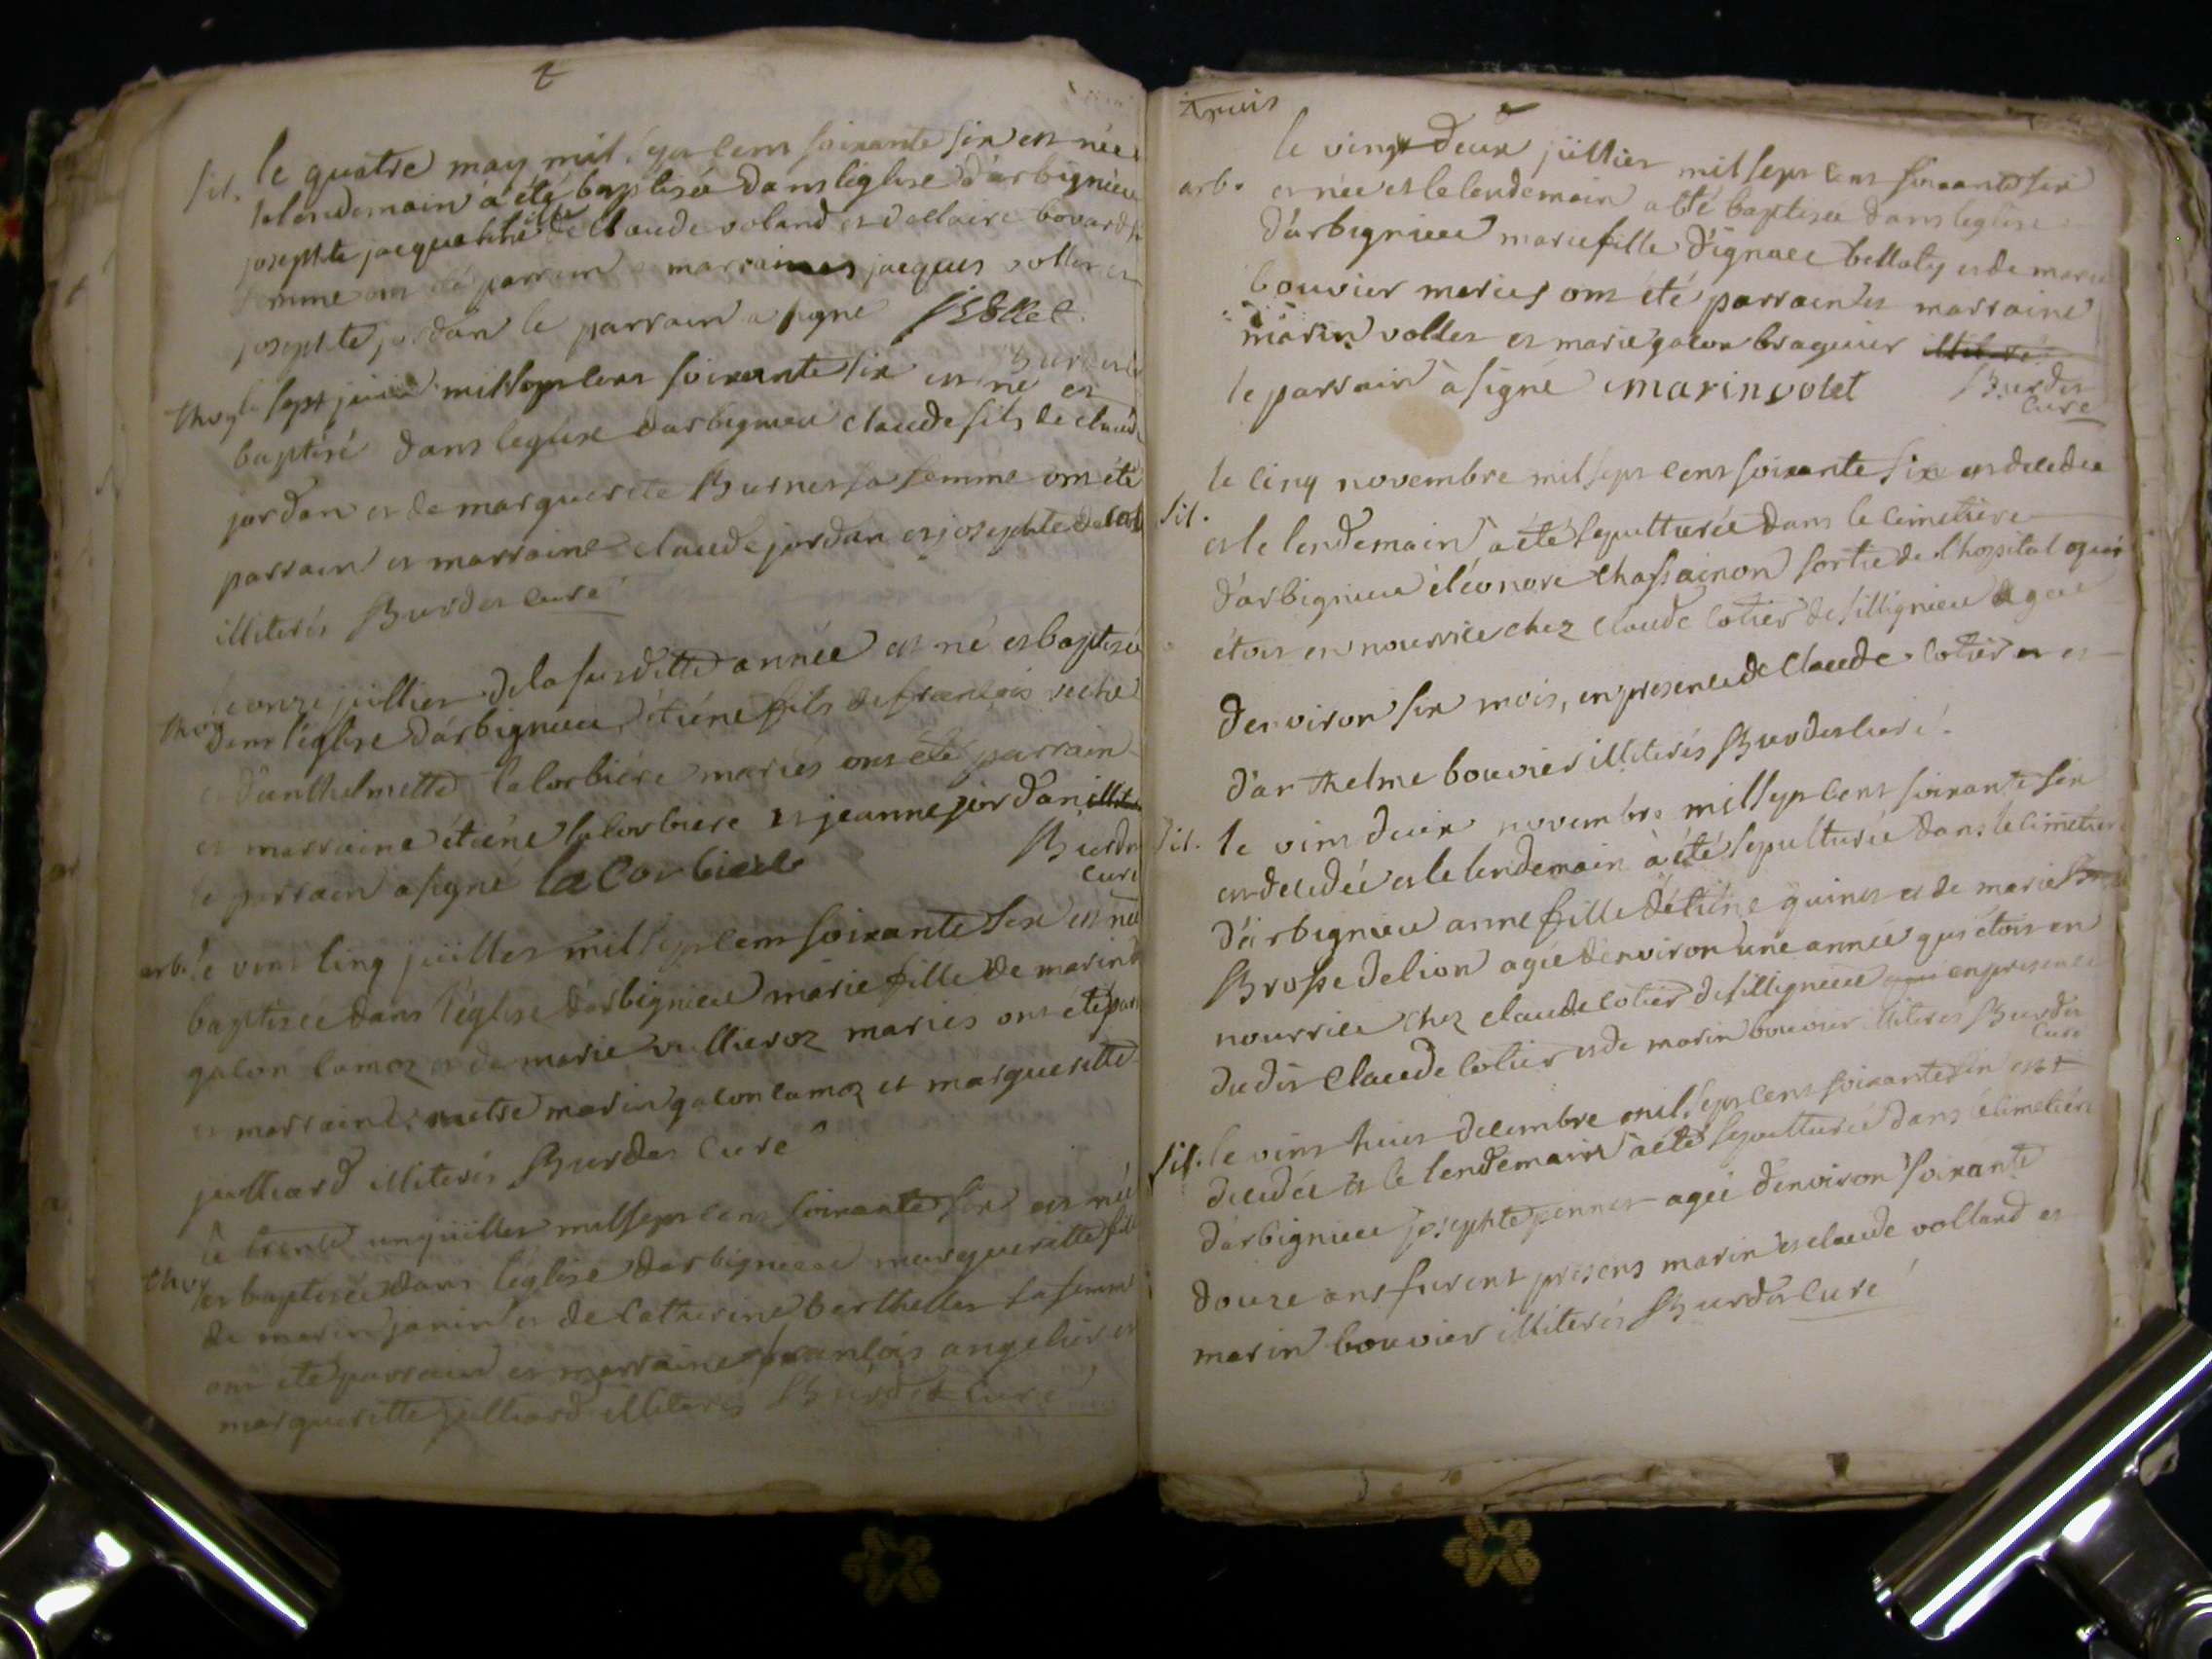 2
sil. le quatre may mil sept cent soixante six est née
le lendemain a été baptisée dans leglise d'arbignieu
josephte jacqueline fille de Claude voland et de claire bovard sa
femme ont été parrain et marraine jacques vollet et
josephte jordan le parrain a signé J Vollet
Burdet curé
thoy le sept juin mil sept cent soixante six est né et
baptisé dans leglise d'arbignieu claude fils de claude
jordan et de marguerite Burnet sa femme ont été
parrain et marraine claude jordan et josephte
illiterés Burdet curé
le onze juillet de la susditte année est né et baptisé
thoy dans l'église d'arbignieu étiéne fils de francois
et d'anthelmette lacorbiére mariés ont été parrain
et marraine étiéne lacorbiere et jeanne jordan
le parrain a signé lacorbiere
Burdet
curé
arb. le vint cinq juillet mil sept cent soixante six est née
baptisée dans l'église d'arbignieu marie fille de marin
galon lamoz et de marie vullieroz mariés ont été par
et marraine maitre marin galon lamoz et margueritte
julliard illiterés Burdet curé
le trente un juillet mil sept cent soixante six est née
thoy et baptisée dans l'église d'arbignieu marguerittte fille
de marin janin et de catherine berthellet sa femme
ont été parrain et marraine francois angelier et
marguerittte julliard illiterés Burdet curé
trois
le vingt deux juillet mil sept cent soixante six
arb. est née et le lendemain a été baptisée dans leglise
d'arbignieu marie fille d'ignace bellaty et de marie
bouvier mariés ont été parrain et marraine
marin vollet et marie galon bragurier
le parrain a signé marin volet
Burdet
curé
le cinq novembre mil sept cent soixante six est decedée
sil.
et le lendemain a été sepulturée dans le cimetiére
d'arbignieu éléonore chassainon sortie de l'hopital qui
étoit en nourrice chez claude cotier de sillignieu agée
d'environ six mois, en presence de Claude cotier et
d'anthelme bouvier illiterés Burdet curé.
sil. le vint deux novembre mil sept cent soixante six
est decedée et le lendemain a été sepulturée dans le cimetiere
d'arbignieu anne fille d'étiéne guinet et de marie
Brosse de lion agée d'environ une année qui étoit en
nourrice chez claude cotier de sillignieu en presence
dudit Claude cotier et de marin bouvier illiterés Burdet
curé
sil. le vint huit decembre mil sept cent soixante six est
decedée et le lendemain a été sepulturée dans le cimetiére
d'arbignieu josephte pennet agée d'environ soixante
douze ans furent presens marin et claude volland et
marin bouvier illiterés Burdet curé